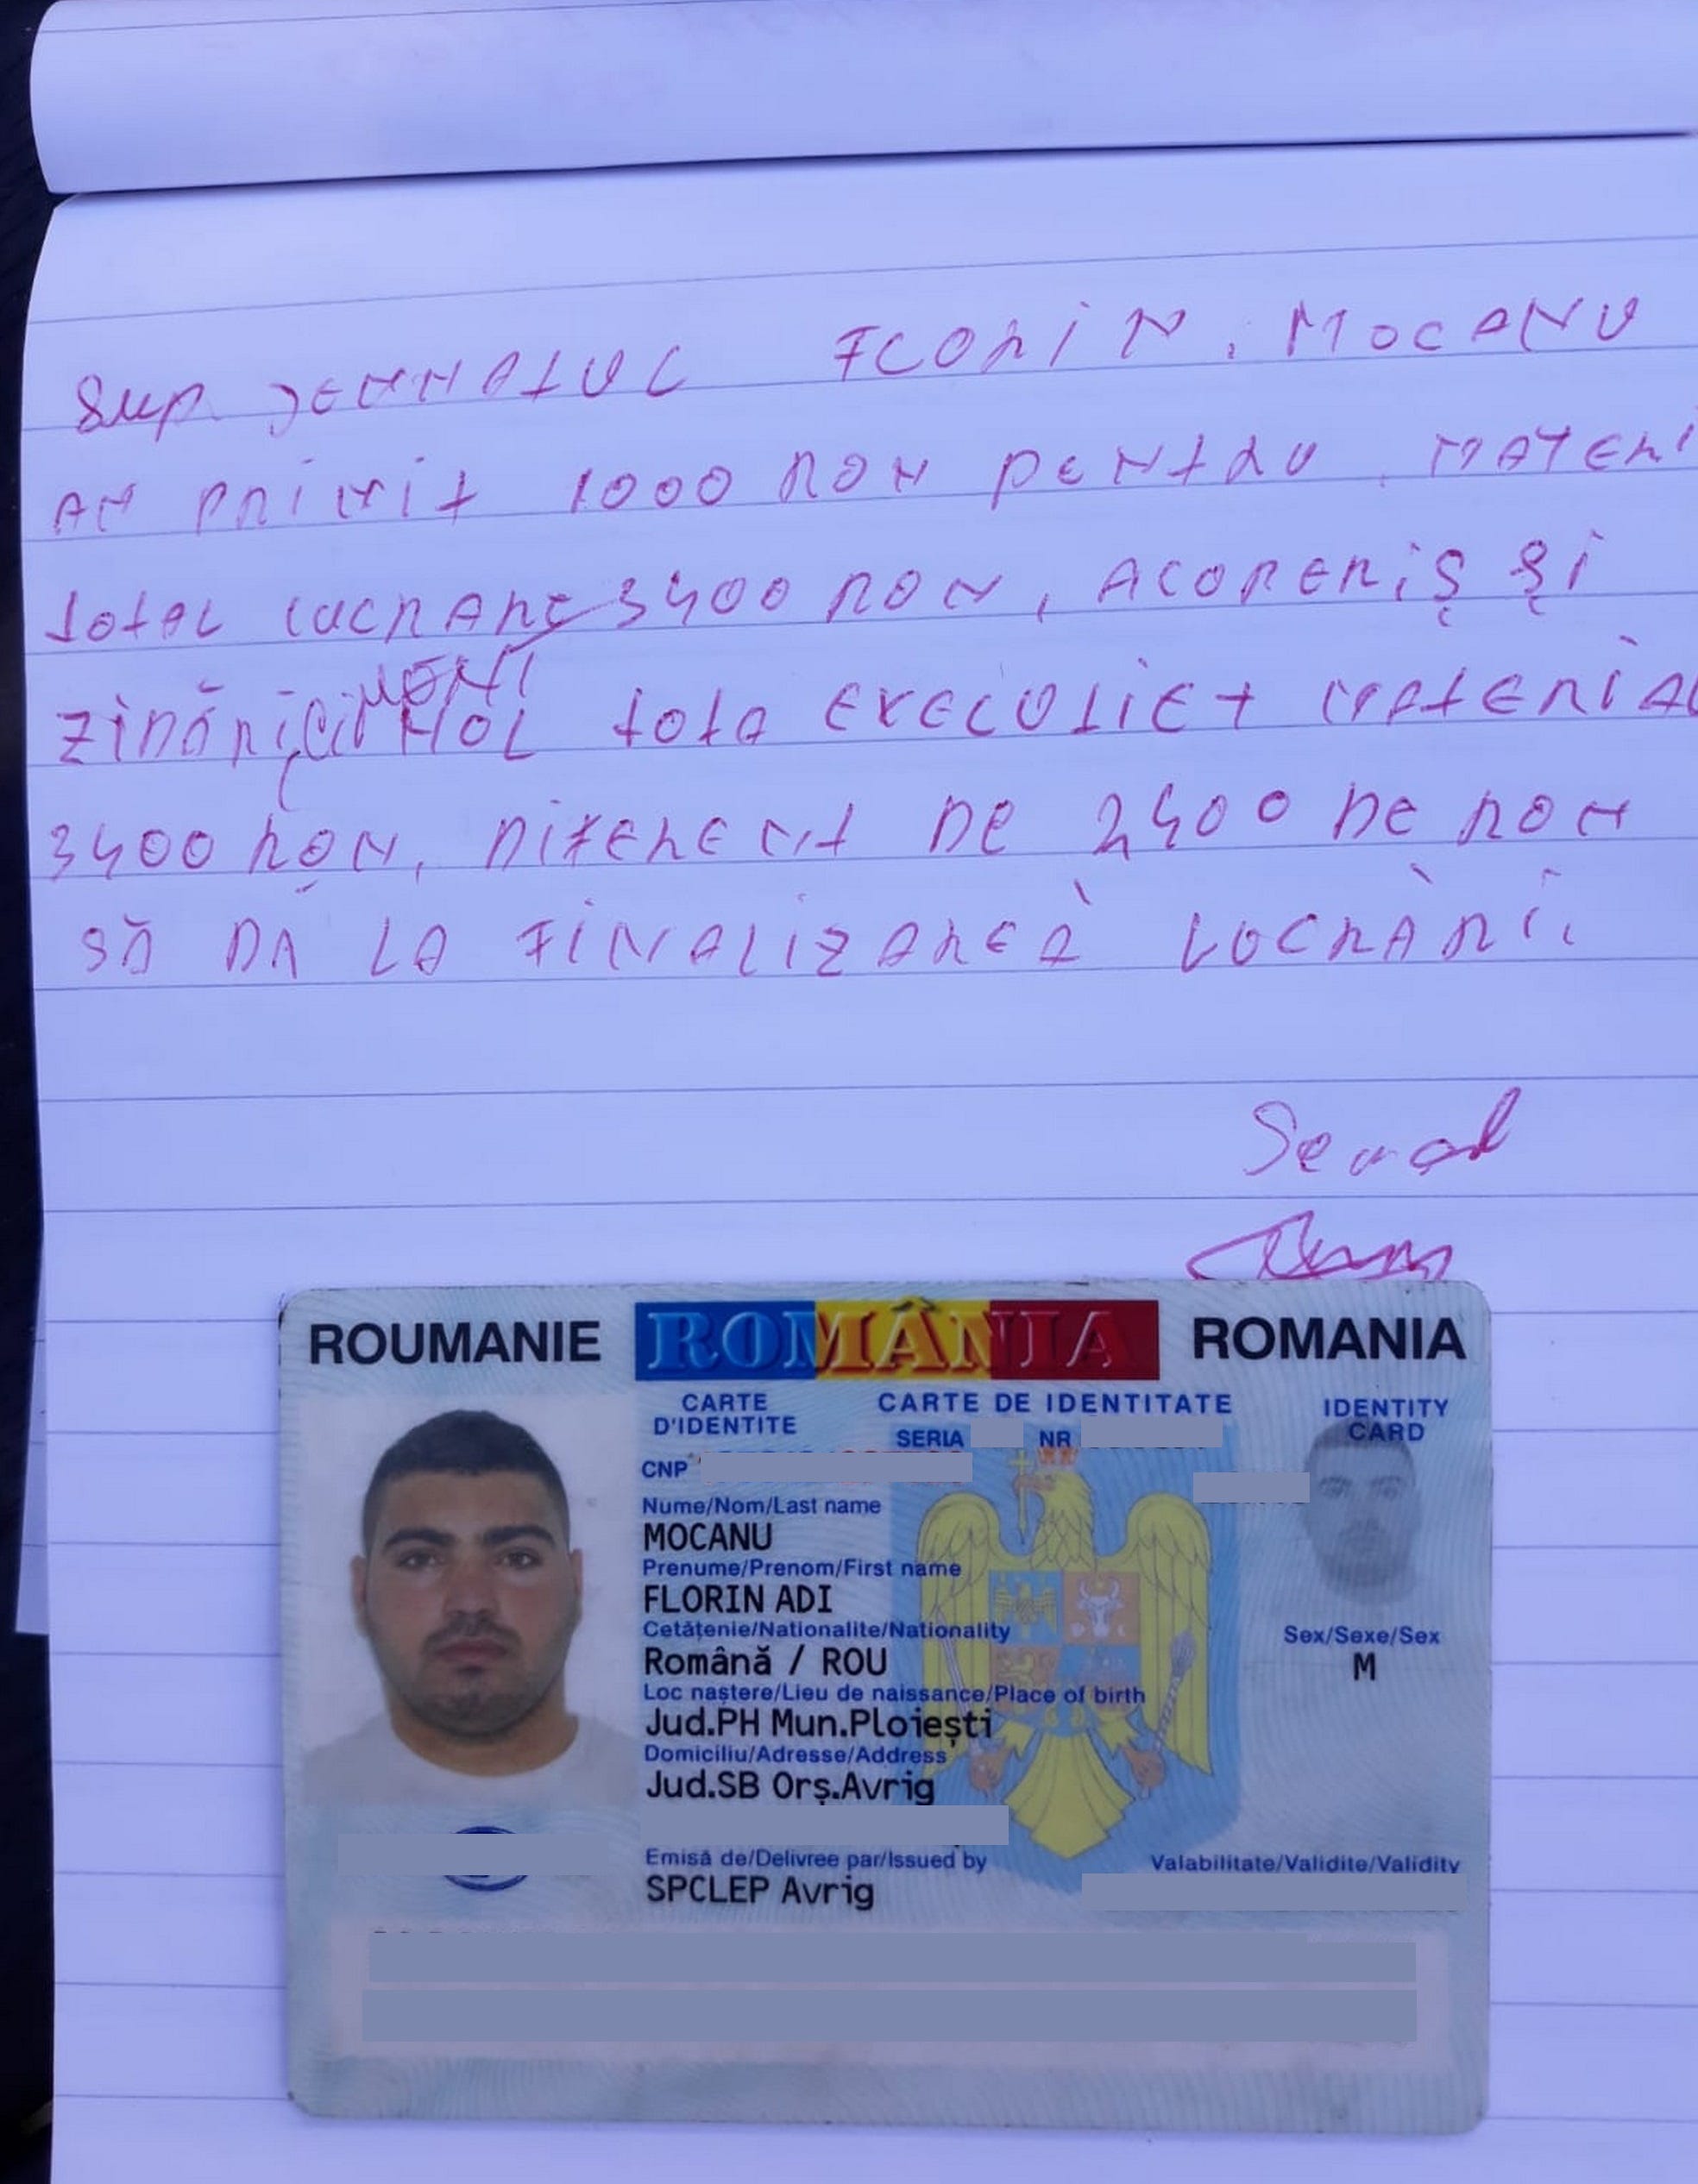 Sup semnatul Florin, Mocanu
am primit 1000 ron pentru, materi
total lucrare 3400 ron, acoperiș și
zidărie hol tota execuție + material
3400 ron, diferent de 2400 de ron
să dă la finalizarea lucrării.
ROUMANIE ROMÂNIA ROMANIA
CARTE D'IDENTITE
CARTE DE IDENTITATE
IDENTITY CARD
SERIA NR
CNP
Nume/Nom/Last name
MOCANU
Prenume/Prenom/First name
FLORIN ADI
Cetățenie/Nationalite/Nationality
Română / ROU
Sex/Sexe/Sex
M
Loc naștere/Lieu de naissance/Place of birth
Jud.PH Mun.Ploiești
Domiciliu/Adresse/Address
Jud.SB Orș.Avrig
Emisă de/Delivree par/Issued by
SPCLEP Avrig
Valabilitate/Validite/Validity